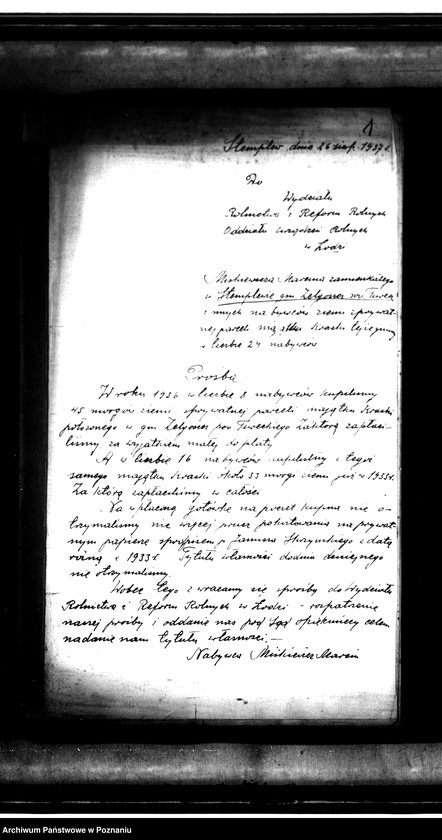 1
Stemplew dnia 26 sierp. 1937 r.
Do
Wydziału
Rolnictwa i Reform Rolnych
Oddziału Urządzeń Rolnych
w Łodzi
Marcina zamieszkałego
w Stemplewie gm Zelgoszcz pow Tureck
i innych nabywców ziemi z prywat
nej parceli majątku Kraski
w liczbie 24 nabywców
Prośba
W roku 1936 w liczbie 8 nabywców kupiliśmy
45 morgów ziemi z prywatnej parceli majątku Kraski
położonego w gm Zelgoszcz pow Tureckiego Za którą zapłaci-
liśmy za wyjątkiem małej dopłaty
A w liczbie 16 nabywców kupiliśmy z tegoż
samego majątku Kraski około 33 morgi ziemi już w 1933 r.
Za którą zapłaciliśmy w całości
Na wpłaconą gotówkę na poczet kupna nie o-
trzymaliśmy nic więcej prócz pokwitowania na prywat-
nym papierze p. z datą
1933 r. Tytułu własności do dnia dzisiejszego
nie otrzymaliśmy.
Wobec tego zwracamy się z prośbą do Wydziału
Rolnictwa i Reform Rolnych w Łodzi - o rozpatrzenie
naszej prośby i oddanie nas pod Sąd opiekuńczy celem
nadania nam tytułu własności. —
Nabywca Marcin
Archiwum Państwowe w Poznaniu